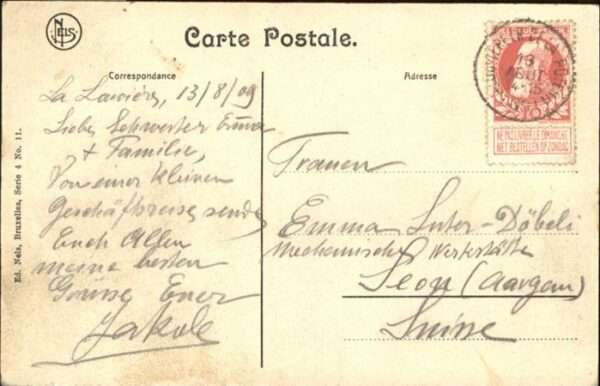 NELS
Carte Postale.
Correspondance
Adresse
La Louvière, 13/8/09
Liebe Schwester Emma
+ Familie,
Von einer kleinen
Geschäftsreise sende
Euch Allen
meine besten
Grüsse Euer
Jakob
Frauen
Emma Suter-Döbeli
Mechanische Werkstätte
Seon (Aargau)
Suisse
13
AOUT
NE PAS LIVRER LE DIMANCHE
NIET BESTELLEN OP ZONDAG
Ed. Nels, Bruxelles, Serie 4 No. 11.